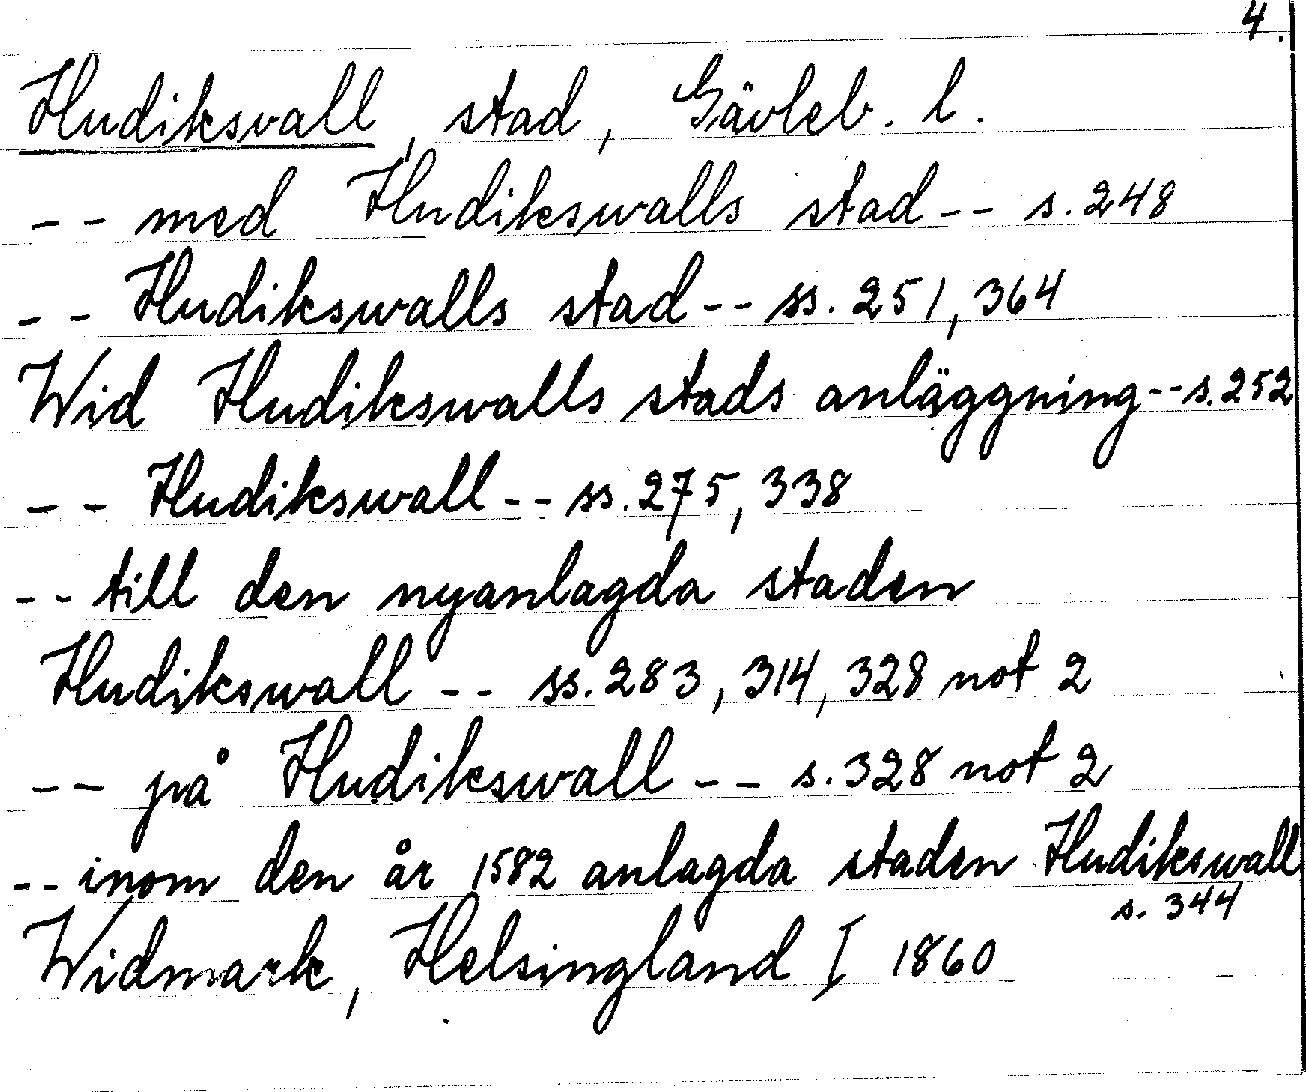 4.
Hudiksvall, stad, Gävleb. l.
-- med Hudikswalls stad -- s. 248
-- Hudikswalls stad -- ss. 251, 364
Wid Hudikswalls stads anläggning -- s. 252
-- Hudikswall -- ss. 275, 338
-- till den nyanlagda staden
Hudikswall -- ss. 283, 314, 328 not 2
-- på Hudikswall -- s. 328 not 2
-- inom den år 1582 anlagda staden Hudikswall
s. 344
Widmark, Helsingland I 1860